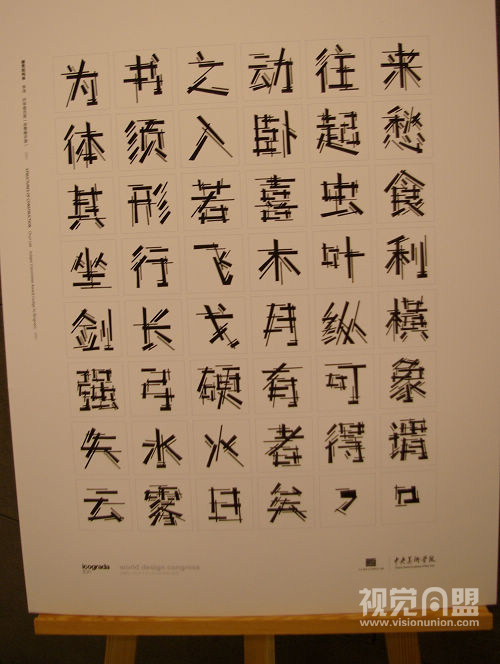 为书之动往来
体须入卧起愁
其形若喜虫食
坐行飞木叶利
剑长戈月纵横
强弓硬有可象
矢水火者得谓
云雾日矣，。
icograda world design congress 中央美术学院
视觉同盟
www.visionunion.com